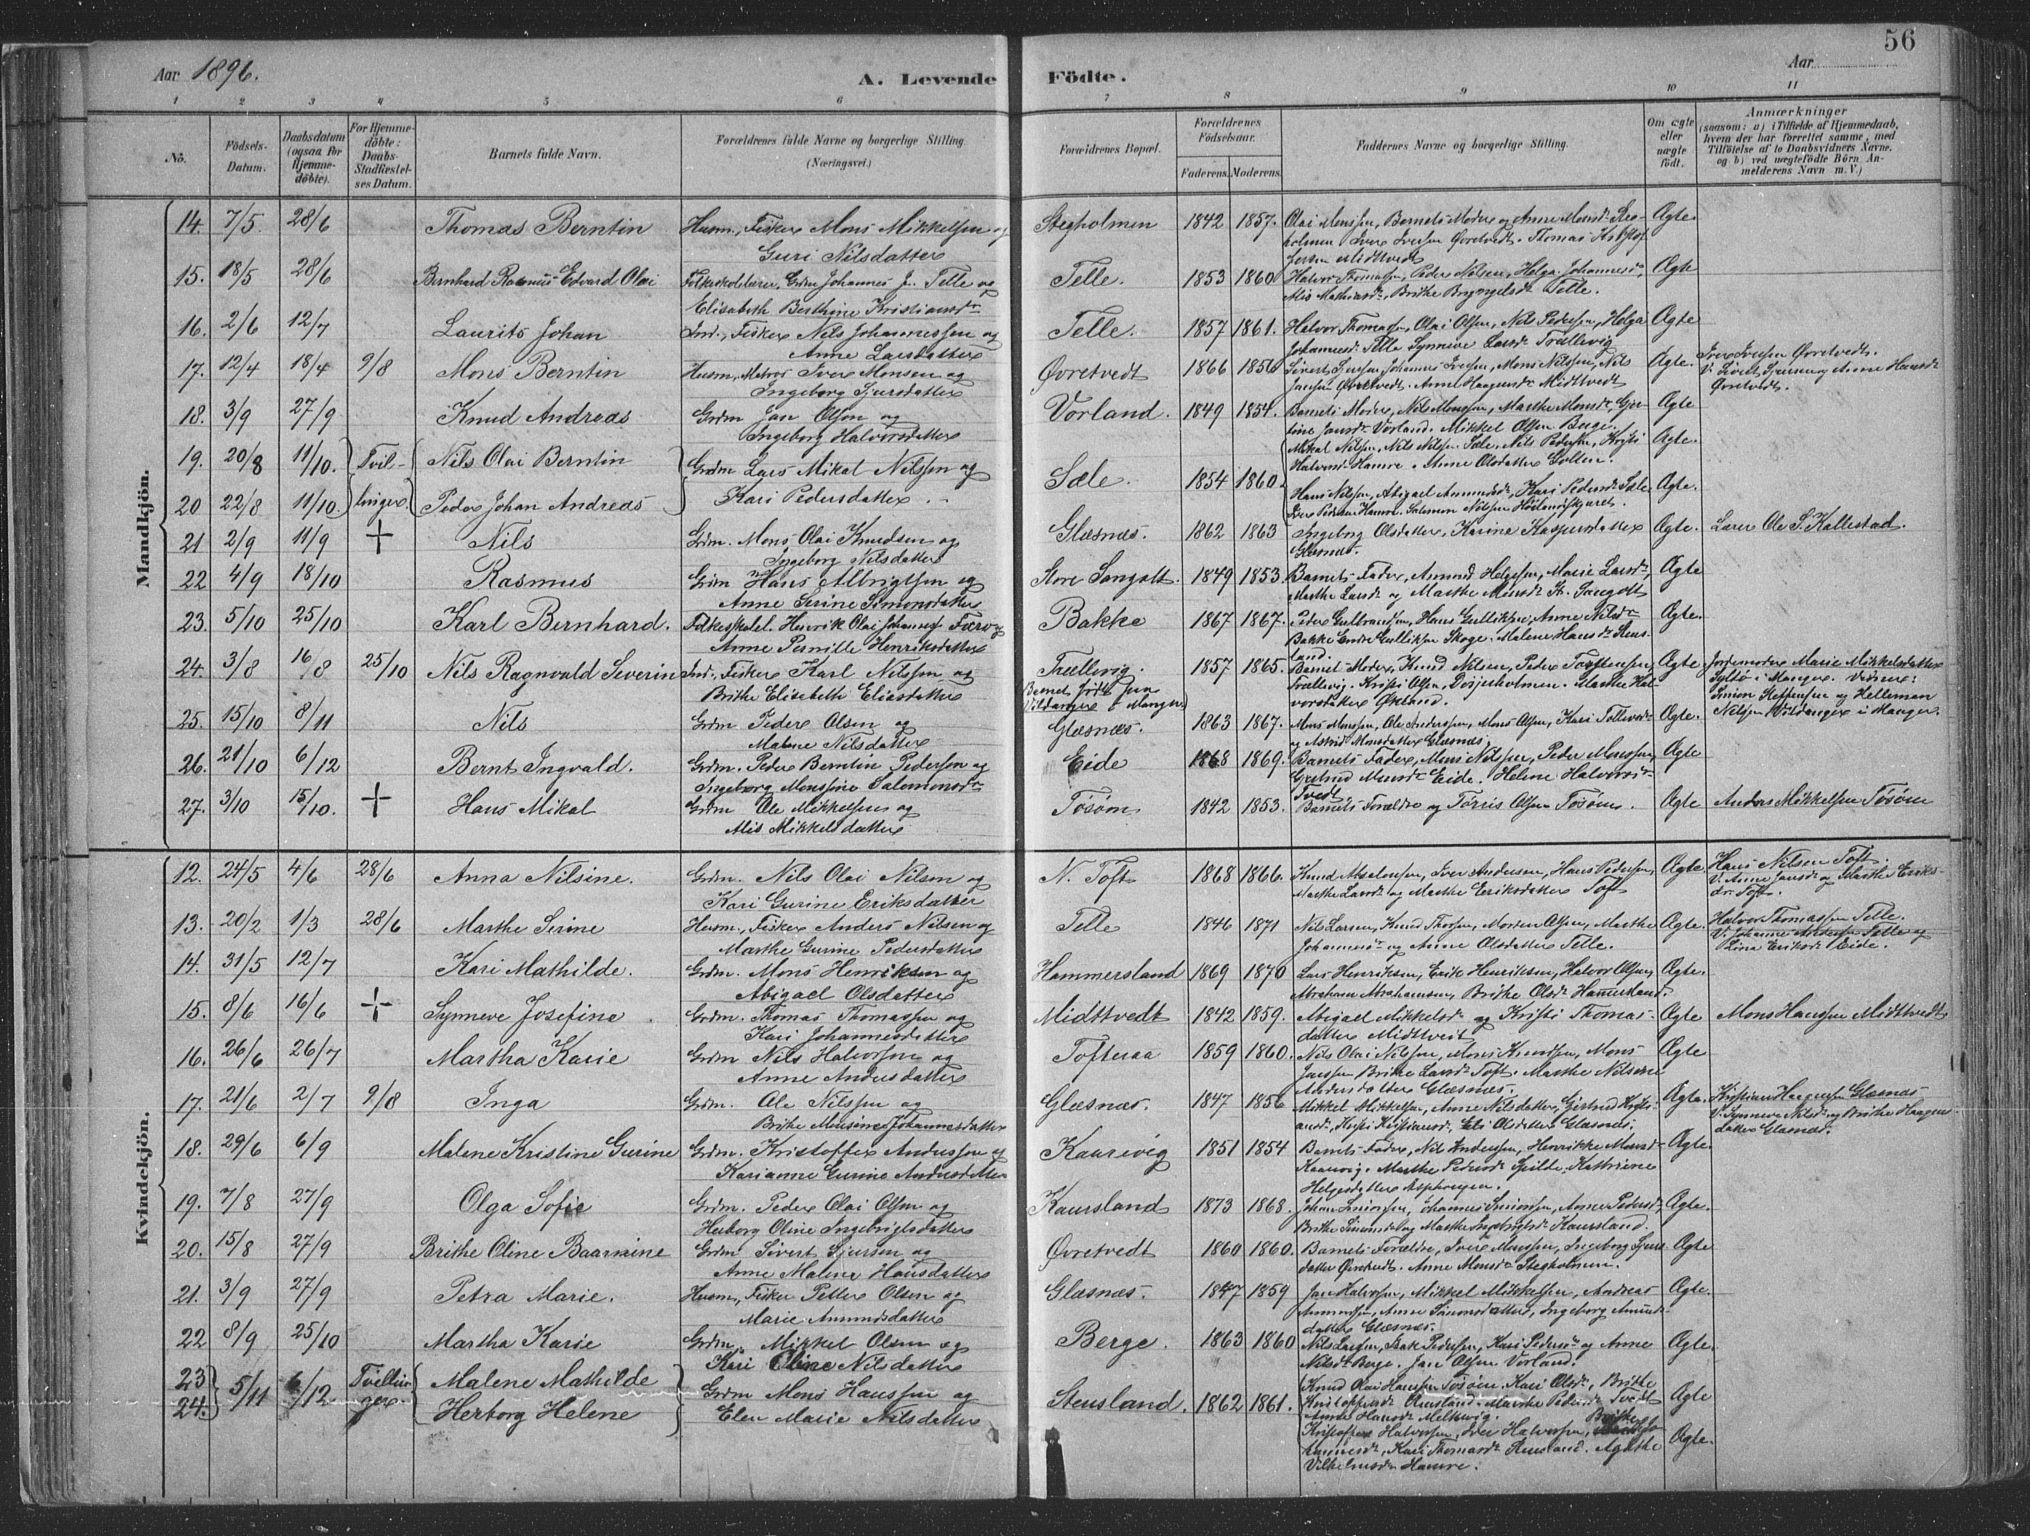 56
Aar 1896.
A. Levende Födte.
Aar
1 2 3 4 5 6 7 8 9 10 11
No.
Födsels-Datum.
Daabsdatum (ogsaa for Hjemme-döbte).
For Hjemme-döbte: Daabs-Stadfæstel-ses Datum.
Barnets fulde Navn.
Forældrenes fulde Navne og borgerlige Stilling.
(Næringsvei.)
Forældrenes Bopæl.
Forældrenes Födselsaar.
Faderens. Moderens.
Faddernes Navne og borgerlige Stilling.
Om ægte eller uægte födt.
Anmærkninger
(saasom: a) i Tilfælde af Hjemmedaab, hvem der har forrettet samme, med Tilföielse af to Daabsvidners Navne, og b) ved uægtefödte Börn An-melderens Navn m. V.)
Mandkjön.
14. 7/5 28/6 Thomas Berntin Husm., Fisker Mons Mikkelsen og Guri Nilsdatter Stegholmen 1842 1857. Olai Monssen, Barnets Moder og Anne Monsd. Steg-holmen Iver Iversen Øvretvedt. Thomas Midttvedt Ægte.
15. 18/5 28/6 Bernhard Rasmus Edvard Olai Folkeskolelærer, Grdm Johannes J. Telle og Elisabeth Berthine Kristiansdr Telle. 1853 1860 Halvor Thomassen, Peder Nilsen, Helga Johannesd., Brithe Brynjelsdr Telle. Ægte
16. 2/6 12/7 Laurits Johan Ind., Fisker Nils Johannessen og Anne Larsdatter Telle. 1857 1861. Halvor Thomassen, Olai Olsen, Nils Pedersen, Helga Johannesdr Telle Synneve Larsdr Trællevig Ægte
17. 12/4 18/4 9/8 Mons Berntin Husm., Matros Iver Monsen og Ingeborg Sjursdatter Øvretvedt 1866 1856 Sivert Iversen Johannes Iversen, Mons Nilssen, Nils Jansen Øvretvedt. Anne Haagensdr Midttvedt Ægte. Iver Iversen Øvretvedt. V. Sivert Iversen og Anne Hansdr Øvretvedt.
18. 3/9 27/9 Knud Andreas Grdm Jan Olsen og Ingeborg Halvorsdatter Vorland. 1849 1854. Barnets Moder, Nils Monssen, Marthe Monsdr, Vorland. Mikkel Olsen Berge. Ægte
19. 20/8 11/10. Tvil- Nils Olai Berntin Grdm Lars Mikal Nilssen og Sæle. 1854 1860. Mikal Nilssen, Nils Nilssen Sæle, Nils Pedersen, Halvorsdr Hamre, Anne Olsdatter Solten. Ægte.
20 22/8 11/10. linger. Peder Johan Andreas Kari Pedersdatter. Hans Nilssen, Abigael Amundsdr, Kari Pedersdr Sæle, Iver Pedersen Hamre. Salomon Nilssen Ægte.
21 2/9 11/9 + Nils Grdm. Mons Olai Knudsen og Ingeborg Nilsdatter Glæsnæs. 1862 1863 Ingeborg Olsdatter, Karina Kaspersdatter Glæsnæs. Ægte. Lærer Ole S. Kallestad.
22 4/9 18/10 Rasmus Grdm Hans Albrigtsen og Anne Serine Simonsdatter Store Sangolt. 1849 1853. Barnets Fader, Amund Helgesen, Marie Larsdr, Marthe Larsdr og Marthe Monsdr St. Sangolt Ægte
23. 5/10 25/10 Karl Bernhard. Folkeskolel. Henrik Olai Johannesen Færø og Anne Pernille Henriksdatter Bakke 1867 1867. Peder Gulbransen, Hans Gulliksen, Anne Nilsdr Bakke Endre Gulliksen Skoge. Malene Hansdr Stens-land. Ægte.
24. 3/8 16/8 25/10 Nils Ragnvald Severin Ind., Fisker Karl Nilssen og Brithe Elisabeth Eliasdatter Trællevig. Barnet født paa Vildanger i Manger. 1857 1865. Barnets Moder, Knud Nilsen, Peder Torstensen, Trællevig. Kristi Olsen, Marthe Hal-vorsdatter Økland. Ægte Jordemoder Marie Mikkelsdatter Syltö i Manger. Vidner: Simon Steffensen og Helleman Nilsen Vildanger i Manger.
25. 15/10 8/11 Nils Grdm Peder Olsen og Malene Nilsdatter Glæsnæs. 1863 1867. Mons Monssen, Ole Anderssen, Mons Olsen, Kari og Astrid Monsdatter Glæsnæs. Ægte.
26. 21/10 6/12 Bernt Ingvald. Grdm. Peder Berntin Pedersen og Ingeborg Monssine Salomonsdr Eide 1868 1869. Barnets Fader, Mons Nilssen, Peder Monssen, Gjertrud Monsdr Eide. Helene Halvorsdr Tvedt Ægte
27. 3/10 15/10. + Hans Mikal Grdm Ole Mikkelsen og Mikkelsdatter Tösöm 1842 1853. Barnets Forældre og Tönis Olsen Tösöm. Ægte Anders Mikkelsen Tösöm
Kvindekjön.
12. 24/5 4/6 28/6 Anna Nilsine. Grdm. Nils Olai Nilsen og Kari Gurine Eriksdatter N. Toft 1868 1866. Knud Absalonsen, Iver Andersen, Hans Pedersen, Marthe Larsdr og Marthe Eriksdatter Toft Ægte Hans Nilsen Toft. V. Anne Jansdr og Marthe Eriks-dr. Toft.
13. 20/2 1/3 28/6 Marthe Sirine Husm., Fisker Anders Nilsen og Marthe Gurine Pedersdatter Telle 1846 1871 Nils Larsen, Knud Thorsen, Morten Olsen, Marthe Johannesdr og Anne Olsdatter Telle. Ægte. Halvor Thomassen Telle. V. Johanne Andersen Telle og Lina Eriksdr Eide.
14. 31/5 12/7 Kari Mathilde. Grdm. Mons Henriksen og Abigael Olsdatter Hammersland 1869 1870 Lars Henriksen, Erik Henriksen, Halvor Olsen, Abraham Abrahamsen, Brithe Olsdr Hammersland. Ægte.
15. 8/6 16/6 + Synneve Josefine. Grdm. Thomas Thomassen og Kari Johannesdatter Midttvedt 1842 1859. Abigael Mikkelsdr og Kristi Thomas-datter Midttveit Ægte Mons Hanssen Midttvedt.
16. 26/6 26/7 Martha Karie Grdm Nils Halvorsen og Anne Andersdatter Tofteraa 1859 1860. Nils Olai Nilssen, Mons Knudsen, Mons Janssen, Brithe Larsdr Toft. Marthe Nilsine Andersdatter Glæsnæs. Ægte
17. 21/6 2/7 9/8 Inga Grdm. Ole Nilssen og Brithe Monsine Johannesdatter Glæsnæs. 1847 1856 Mikkel Mikkelsen, Anne Nilsdatter, Gjertrud Olsdatter Glæsnæs. Ægte. Kristian Haagensen Glæsnæs V. Synneve Nilsdr og Brithe Haagens-datter Glæsnæs.
18. 29/6 6/9 Malene Kristine Gurine Grdm. Kristoffer Anderssen og Karianne Gurine Andersdatter Kaurivig 1851 1854 Barnets Fader, Nils Andersen, Henrikke Monsdr Kaurivig. Marthe Pedersdr Spilde. Kathrine Helgesdatter Ægte.
19. 7/8 27/9 Olga Sofie Grdm. Peder Olai Olsen og Herborg Oline Ingebrigtsdatter Kaursland 1873 1868. Johan Simonsen, Johannes Simonsen, Anne Pedersdr, Brithe Simonsdr og Marthe Ingebrigtsdr Kaursland. Ægte.
20. 15/8 27/9 Brithe Oline Baarnine Grdm Sivert Sjursen og Anne Malena Hansdatter Øvretvedt 1860 1860. Barnets Forældre, Iver Monssen, Ingeborg Sjurs-datter Øvretvedt. Anne Monsdr Stegholmen. Ægte
21. 3/9 27/9 Petra Marie. Husm., Fisker Petter Olsen og Marie Amundsdatter Glæsnæs. 1847 1859 Jan Halvorsen, Mikkel Mikkelsen, Andreas Amundsen, Anne Simonsdatter, Ingeborg Amunds-datter Glæsnæs. Ægte.
22 8/9 25/10 Martha Karie Grdm. Mikkel Olsen og Kari Oline Nilsdatter Berge. 1863 1860 Nils Larsen, Bak Pedersen, Kari Pedersdr og Anne Nilsdr Berge. Jan Olsen Vorland. Ægte.
23 24. 5/11 6/12 Tvillin-ger. Malene Mathilde Herborg Helene Grdm Mons Hanssen og Elen Marie Nilsdatter Stensland. 1862 1861. Knud Olai Hanssen Tösöm, Kari Olsdr, Brithe Marthe Pedersdr Tvedt Ægte
Kristoffer Halvorsen, Iver Halvorsen, Brithe Kari Thomasdr Stensland. Agathe Vilhelmsdr Hamre. Ægte.